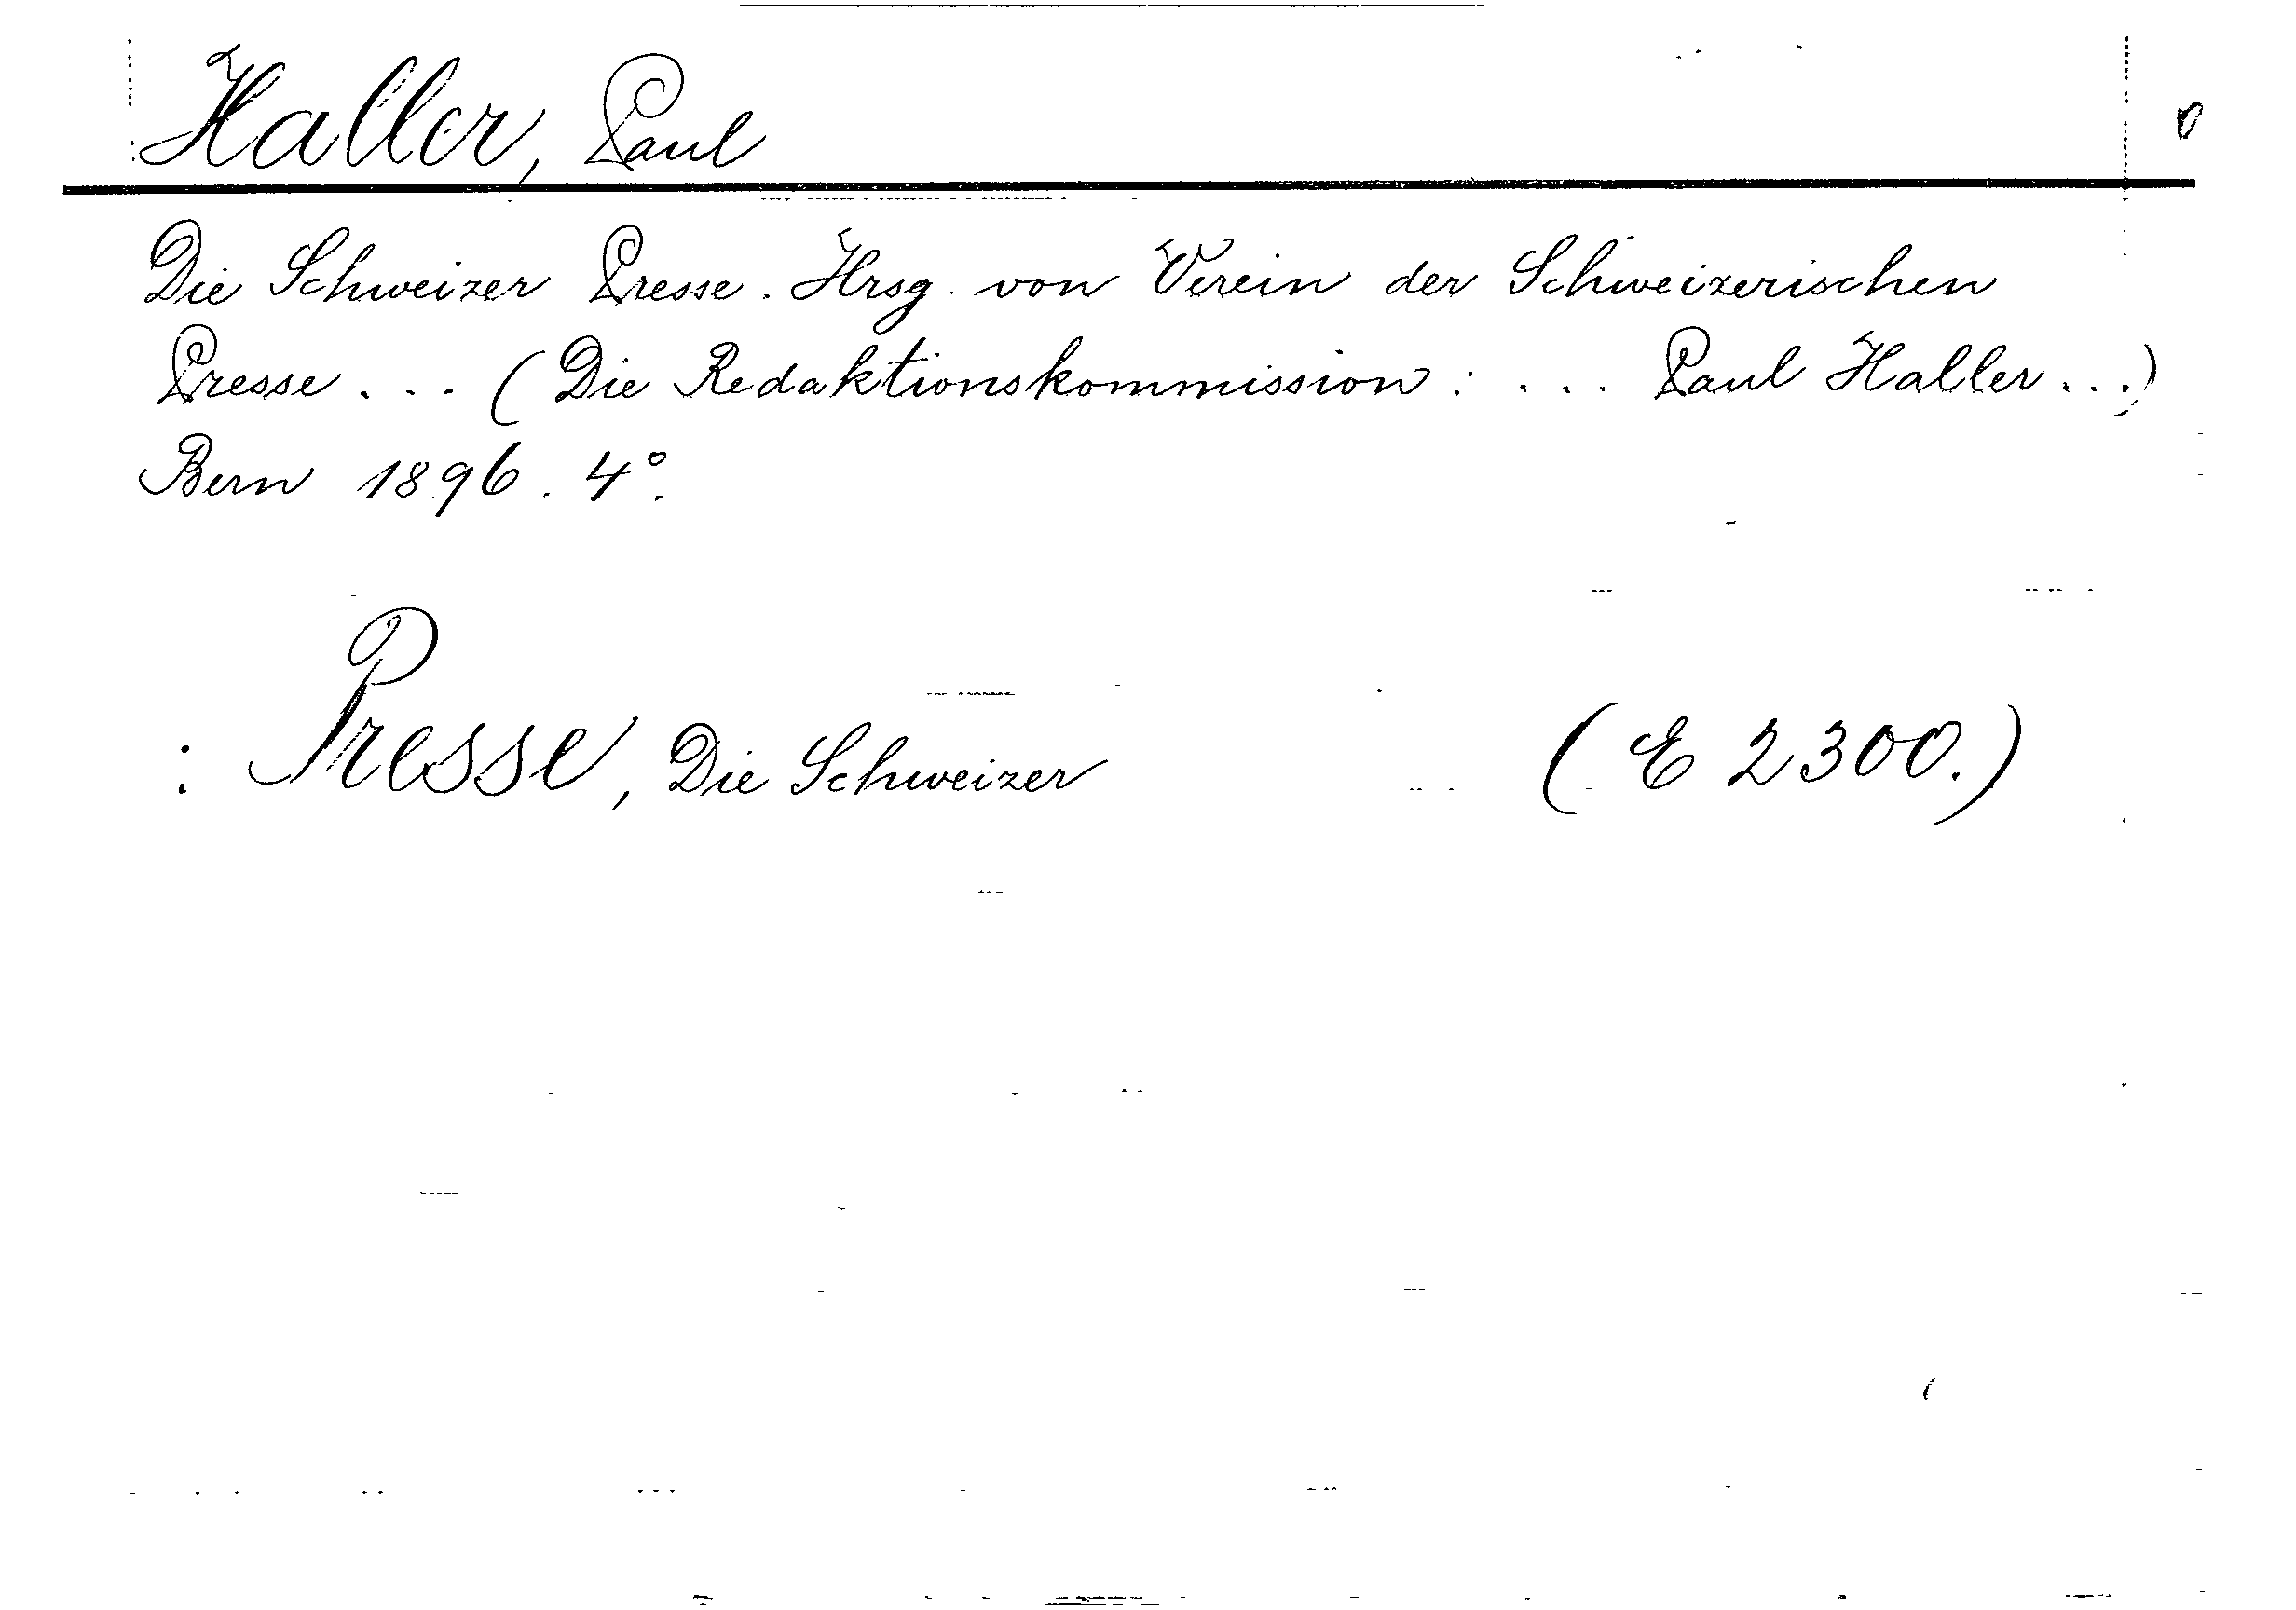 Haller, Paul
Die Schweizer Presse. Hrsg. von Verein der Schweizerischen
Presse ... (Die Redaktionskommission: ... Paul Haller...)
Bern 1896. 4°.
: Presse, Die Schweizer (E 2300.)